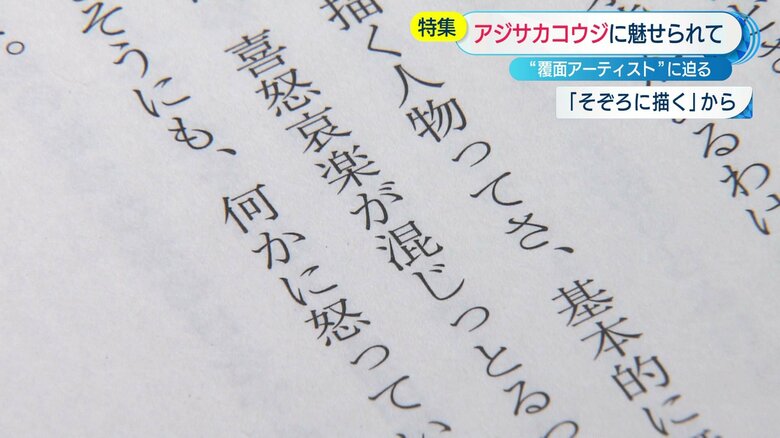 特集
アジサカコウジに魅せられて
“覆面アーティスト”に迫る
「そぞろに描く」から
るわけ
描く人物ってさ、基本的に
喜怒哀楽が混じっとるっ
そうにも、何かに怒ってい
。